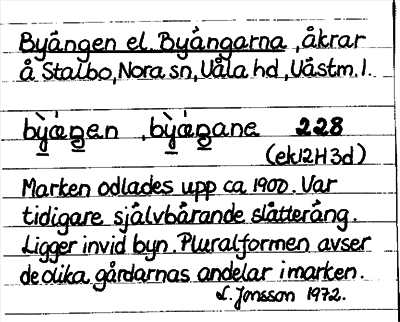 Byängen el. Byängarna, åkrar
å Stalbo, Nora sn, Våla hd, Västm. l.
bỳ̱ǽṉgen , bỳ̱ǽṉgane 228
(ek12H3d)
Marken odlades upp ca 1900. Var
tidigare självbärande slåtteräng.
Ligger invid byn. Pluralformen avser
de olika gårdarnas andelar i marken.
L. Jonsson 1972.